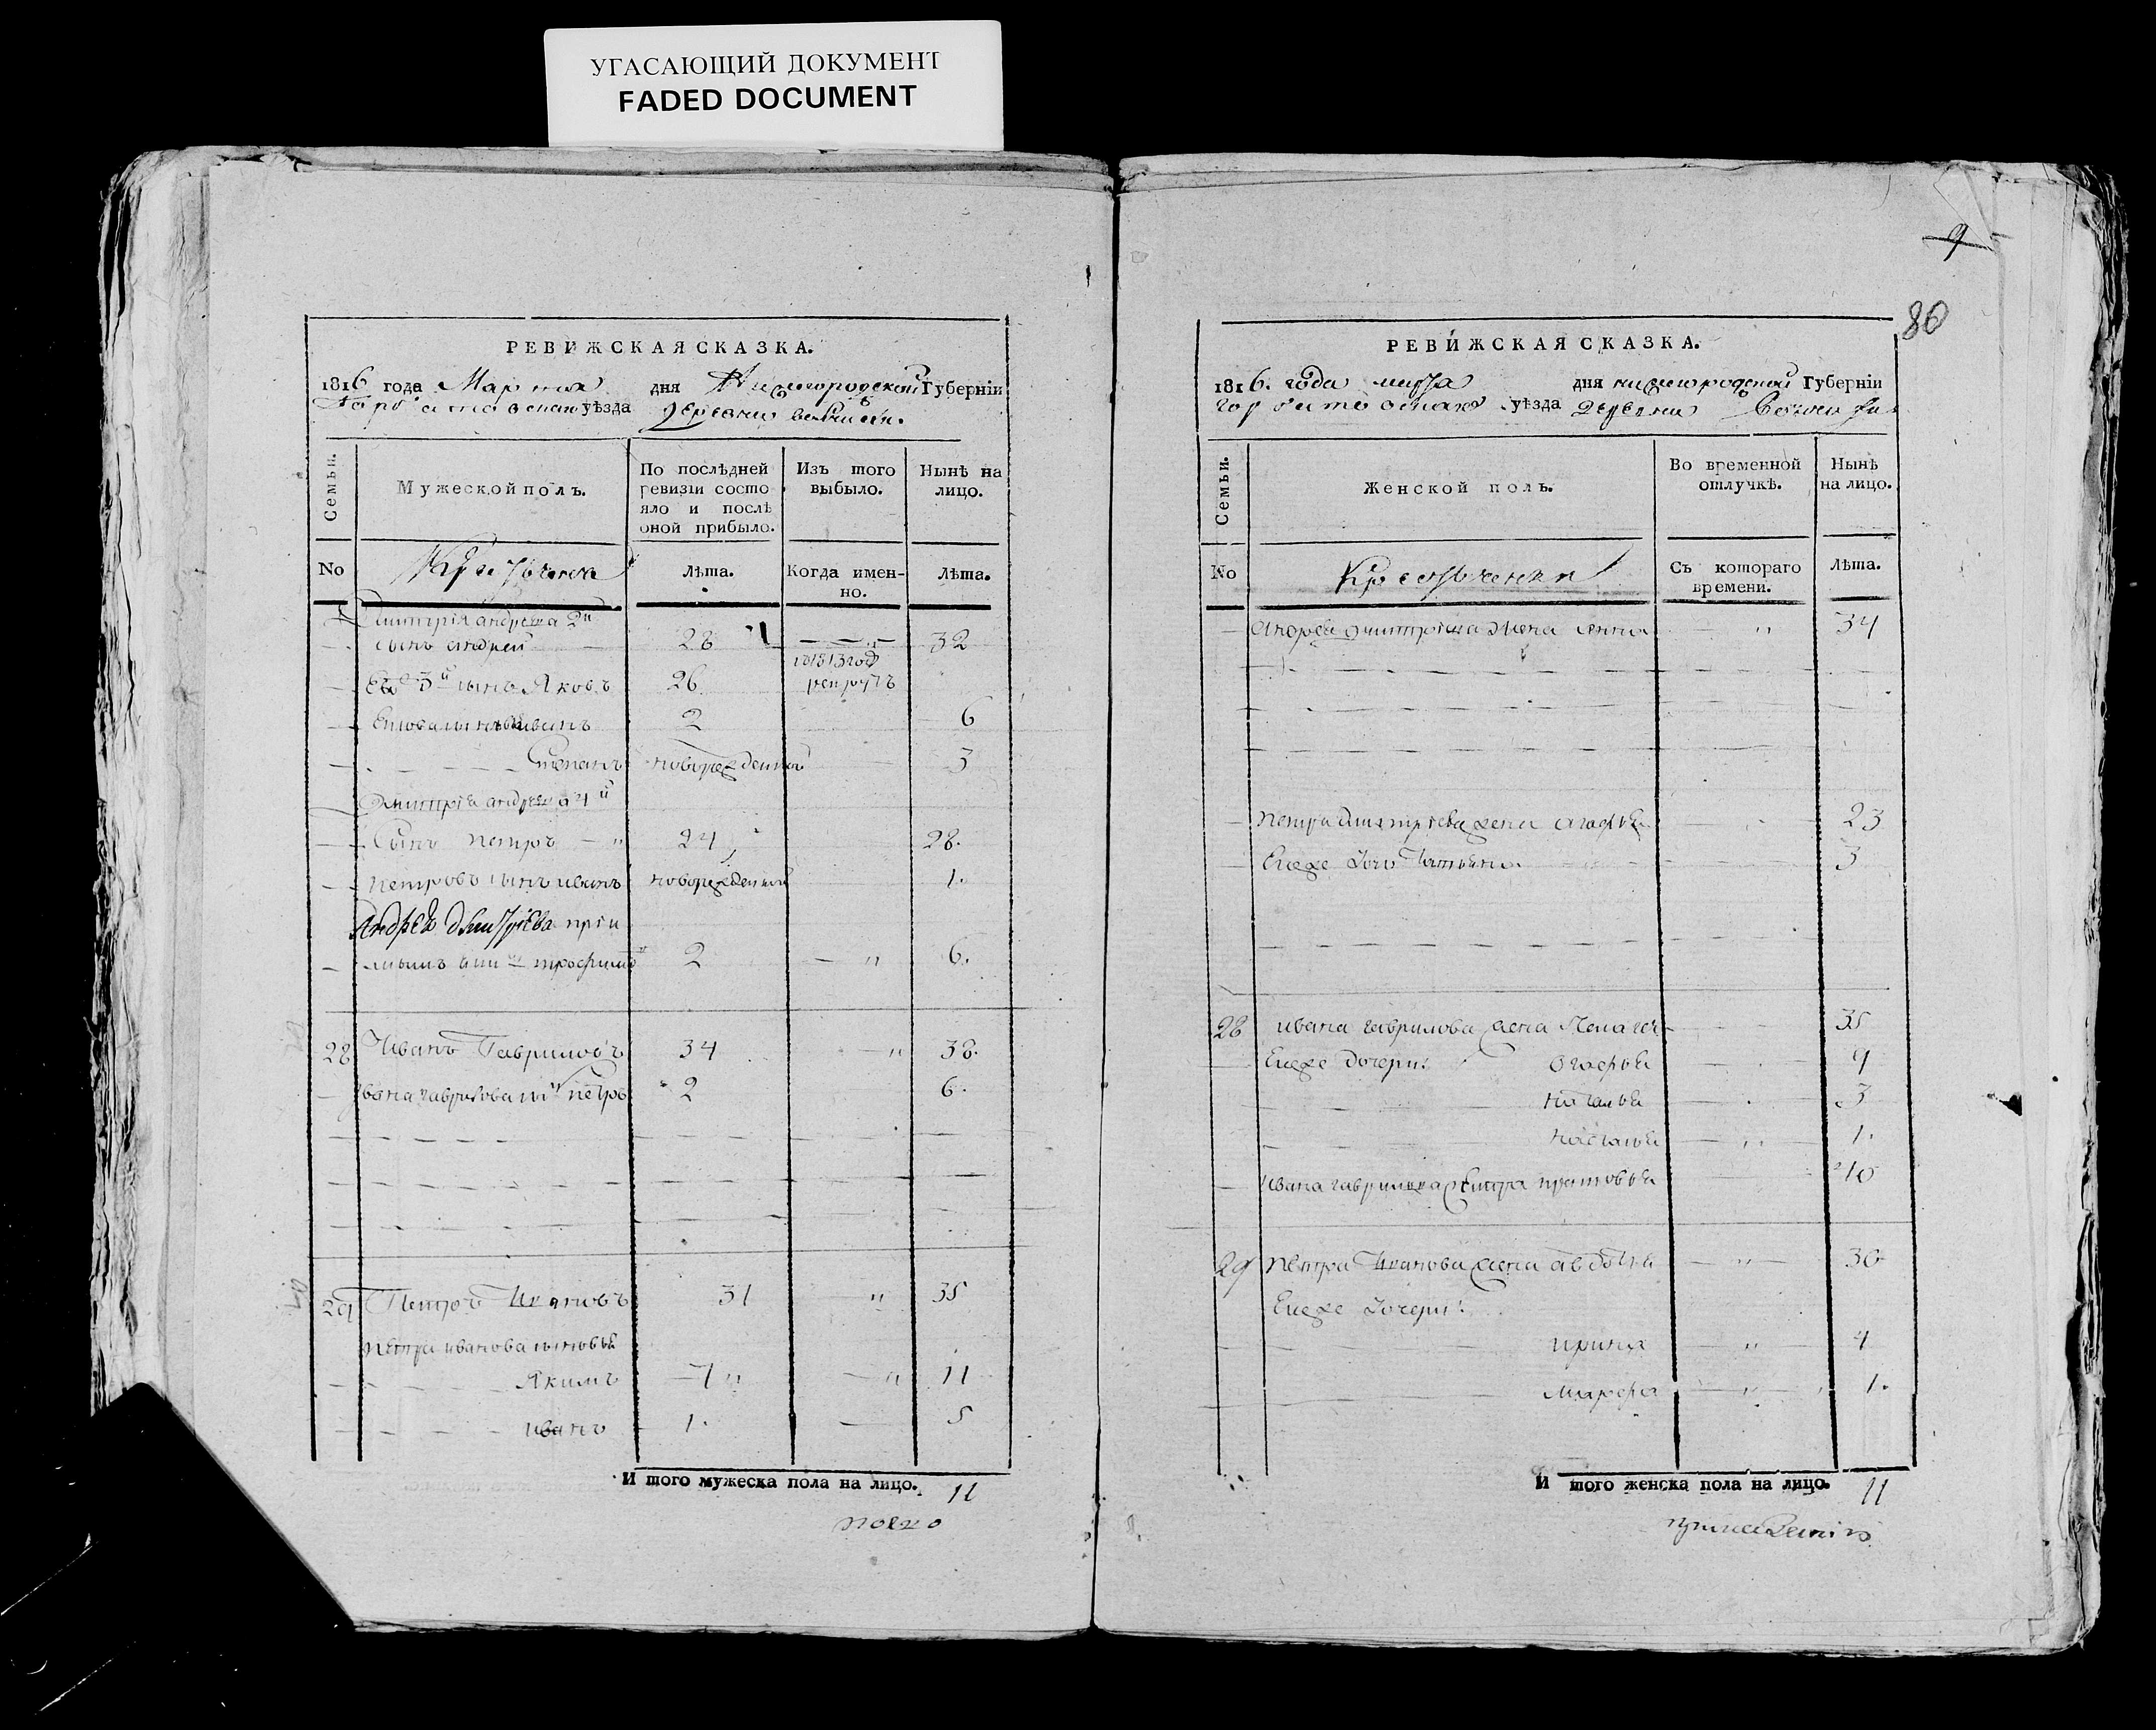 УГАСАЮЩИЙ ДОКУМЕНТ
FADED DOCUMENT
РЕВИЖСКАЯ СКАЗКА.
1816 года Марта дня Нижегородской Губерніи
Горбатовскаго уѣзда деревни
Семьи.
Мужеской полъ.
По послѣдней ревизіи состояло и послѣ оной прибыло.
Изъ того выбыло.
Нынѣ на лицо.
No
Крестьяне
Лѣта.
Когда именно.
Лѣта.
Дмитрія андреева 2й
сынъ андрей 28 32
Ево 3й сынъ Яковъ 26 1813 год рекрутъ
сынъ иванъ 2 6
Степанъ новорожденной 3
Дмитрія андреева 4й
Сынъ петръ 24 28.
петровъ сынъ иванъ новорожденной 1.
Андрея дмитрѣева
трофимъ 2 6.
28 Иванъ Гавриловъ 34 38.
ивана гаврилова петръ 2 6.
29 Петръ Ивановъ 31 35
петра иванова сыновья
Якимъ 7 11
иванъ 1. 5
И того мужеска пола на лицо. 11
9
80
РЕВИЖСКАЯ СКАЗКА.
1816. года марта дня нижегородской Губерніи
горбатовскаго уѣзда деревни
Семьи.
Женской полъ.
Во временной отлучкѣ.
Нынѣ на лицо.
No
Крестьянки
Съ котораго времени.
Лѣта.
Андрея дмитрѣева жена анна 34
петра дмитрѣева жена агафья 23
Ееже дочь татьяна. 3
28 ивана гаврилова жена Пелагея 35
Ееже дочери: 9
наталья 3
настасья 1.
ивана гаврилова сестра 40
29 петра Иванова жена авдотья 30
Ееже дочери:
ирина 4
марфа 1.
И того женска пола на лицо. 11